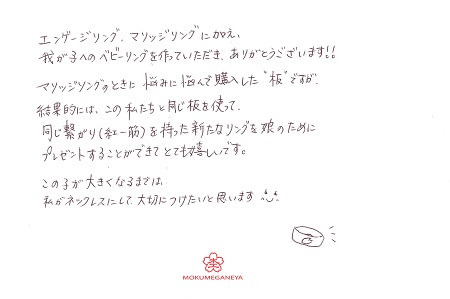 エンゲージリング、マリッジリングに加え、
我が子へのベビーリングを作っていただき、ありがとうございます!!
マリッジリングのときに悩みに悩んで購入した"板"ですが、
結果的には、この私たちと同じ板を使って、
同じ繋がり(紅一筋)を持った新たなリングを娘のために
プレゼントすることができてとても嬉しいです。
この子が大きくなるまでは、
私がネックレスにして、大切につけたいと思います
MOKUMEGANEYA